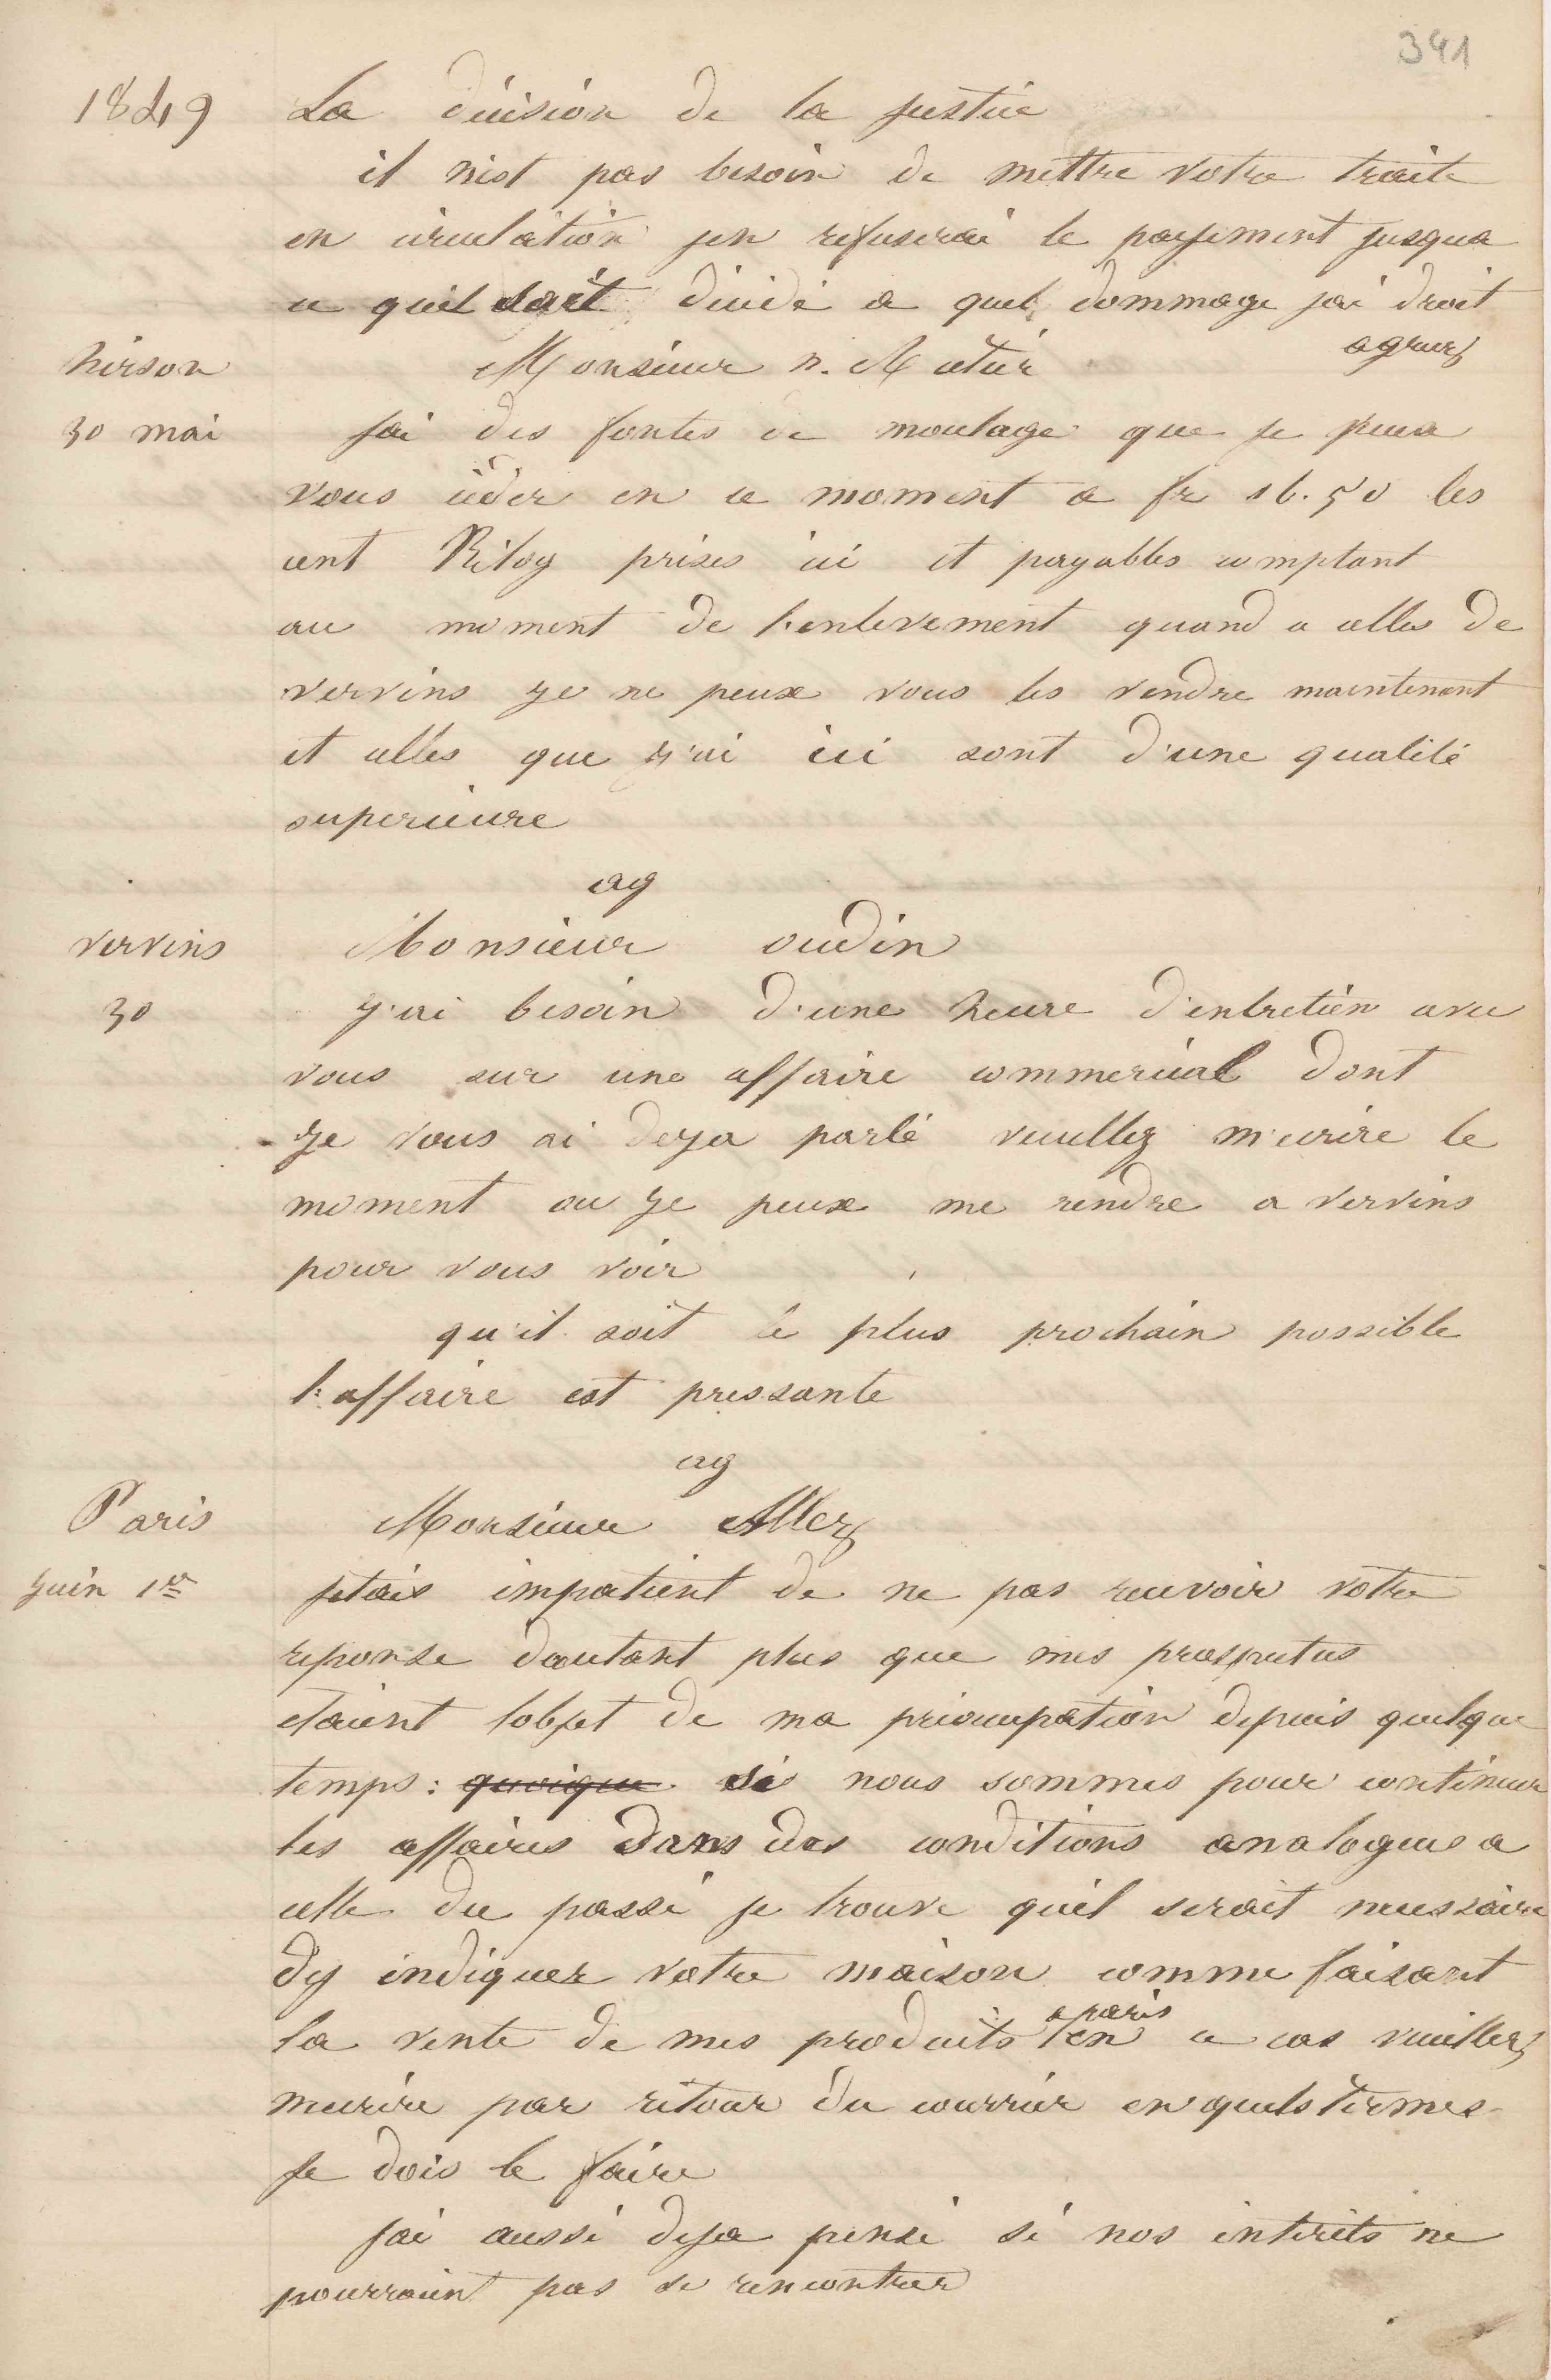 341
1849 La décision de la justice
il n'est pas besoin de mettre votre traite
en circulation jen refuserai le payement jusqua
ce quil soit décidé a quel dommage jai droit
agreez
hirson Monsieur n.
30 mai jai des fontes de moulage que je peux
vous céder en ce moment a fr 16.50 les
cent Kilog prises ici et payables comptant
au moment de l'enlevement quand a celles de
vervins je ne peux vous les vendre maintenant
et celles que j'ai ici sont d'une qualité
superieure
ag
vervins Monsieur oudin
30 j'ai besoin d'une heure d'entretien avec
vous sur une affaire commercial dont
je vous ai deja parlé veuillez m'ecrire le
moment ou je peux me rendre a vervins
pour vous voir
qu'il soit le plus prochain possible
l'affaire est pressante
ag
Paris Monsieur Allez
juin 1er jetais impatient de ne pas recevoir votre
reponse dautant plus que mes prospectus
etaient lobjet de ma préocupation depuis quelque
temps : quoique si nous sommes pour continuer
les affaires dans des conditions analogues a
celle du passé je trouve quil serait necessaire
dy indiquer votre maison comme faisant
la vente de mes produits a paris en ce cas veuillez
mecrire par retour du courrier en quels termes
je dois le faire
jai aussi deja pensé si nos interêts ne
pourraient pas se rencontrer